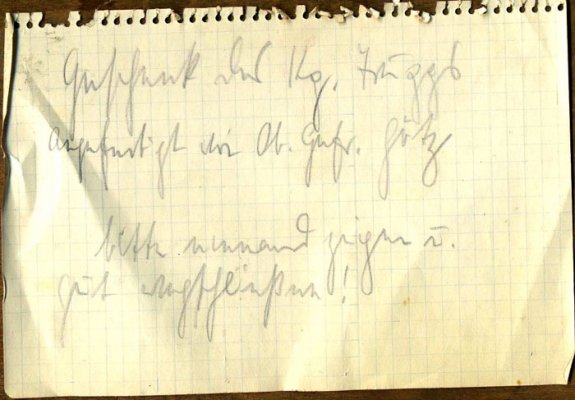 Geschenk des Kg. Trupps
angefertigt von Ob. Gefr. Götz
bitte niemand zeigen u.
gut wegschließen!